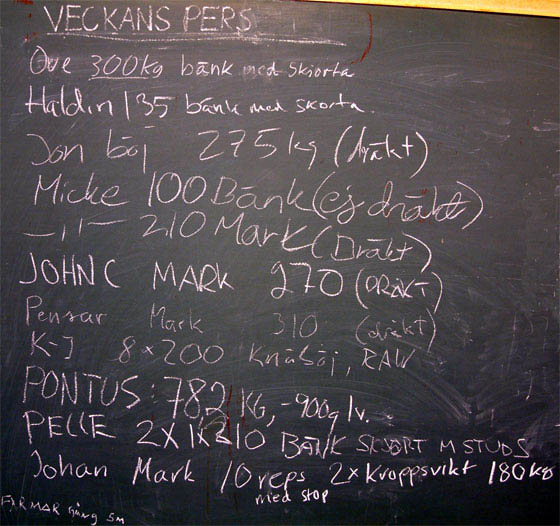 VECKANS PERS
Ove 300kg bänk med skjorta
Haldin 135 bänk med skorta.
Jon böj 275 kg (dräkt)
Micke 100 Bänk (ej dräkt)
—11— 210 Mark (Dräkt)
JOHN C MARK 270 (DRÄKT)
Pensar Mark 310 (dräkt)
K-J 8×200 Knäböj, RAW
PONTUS: 782 KG, -900g lv.
PELLE 2X1X210 BÄNK SKJORT M STUDS
Johan Mark 10 reps 2x Kroppsvikt 180kg
med stop
FARMAR gång 5m